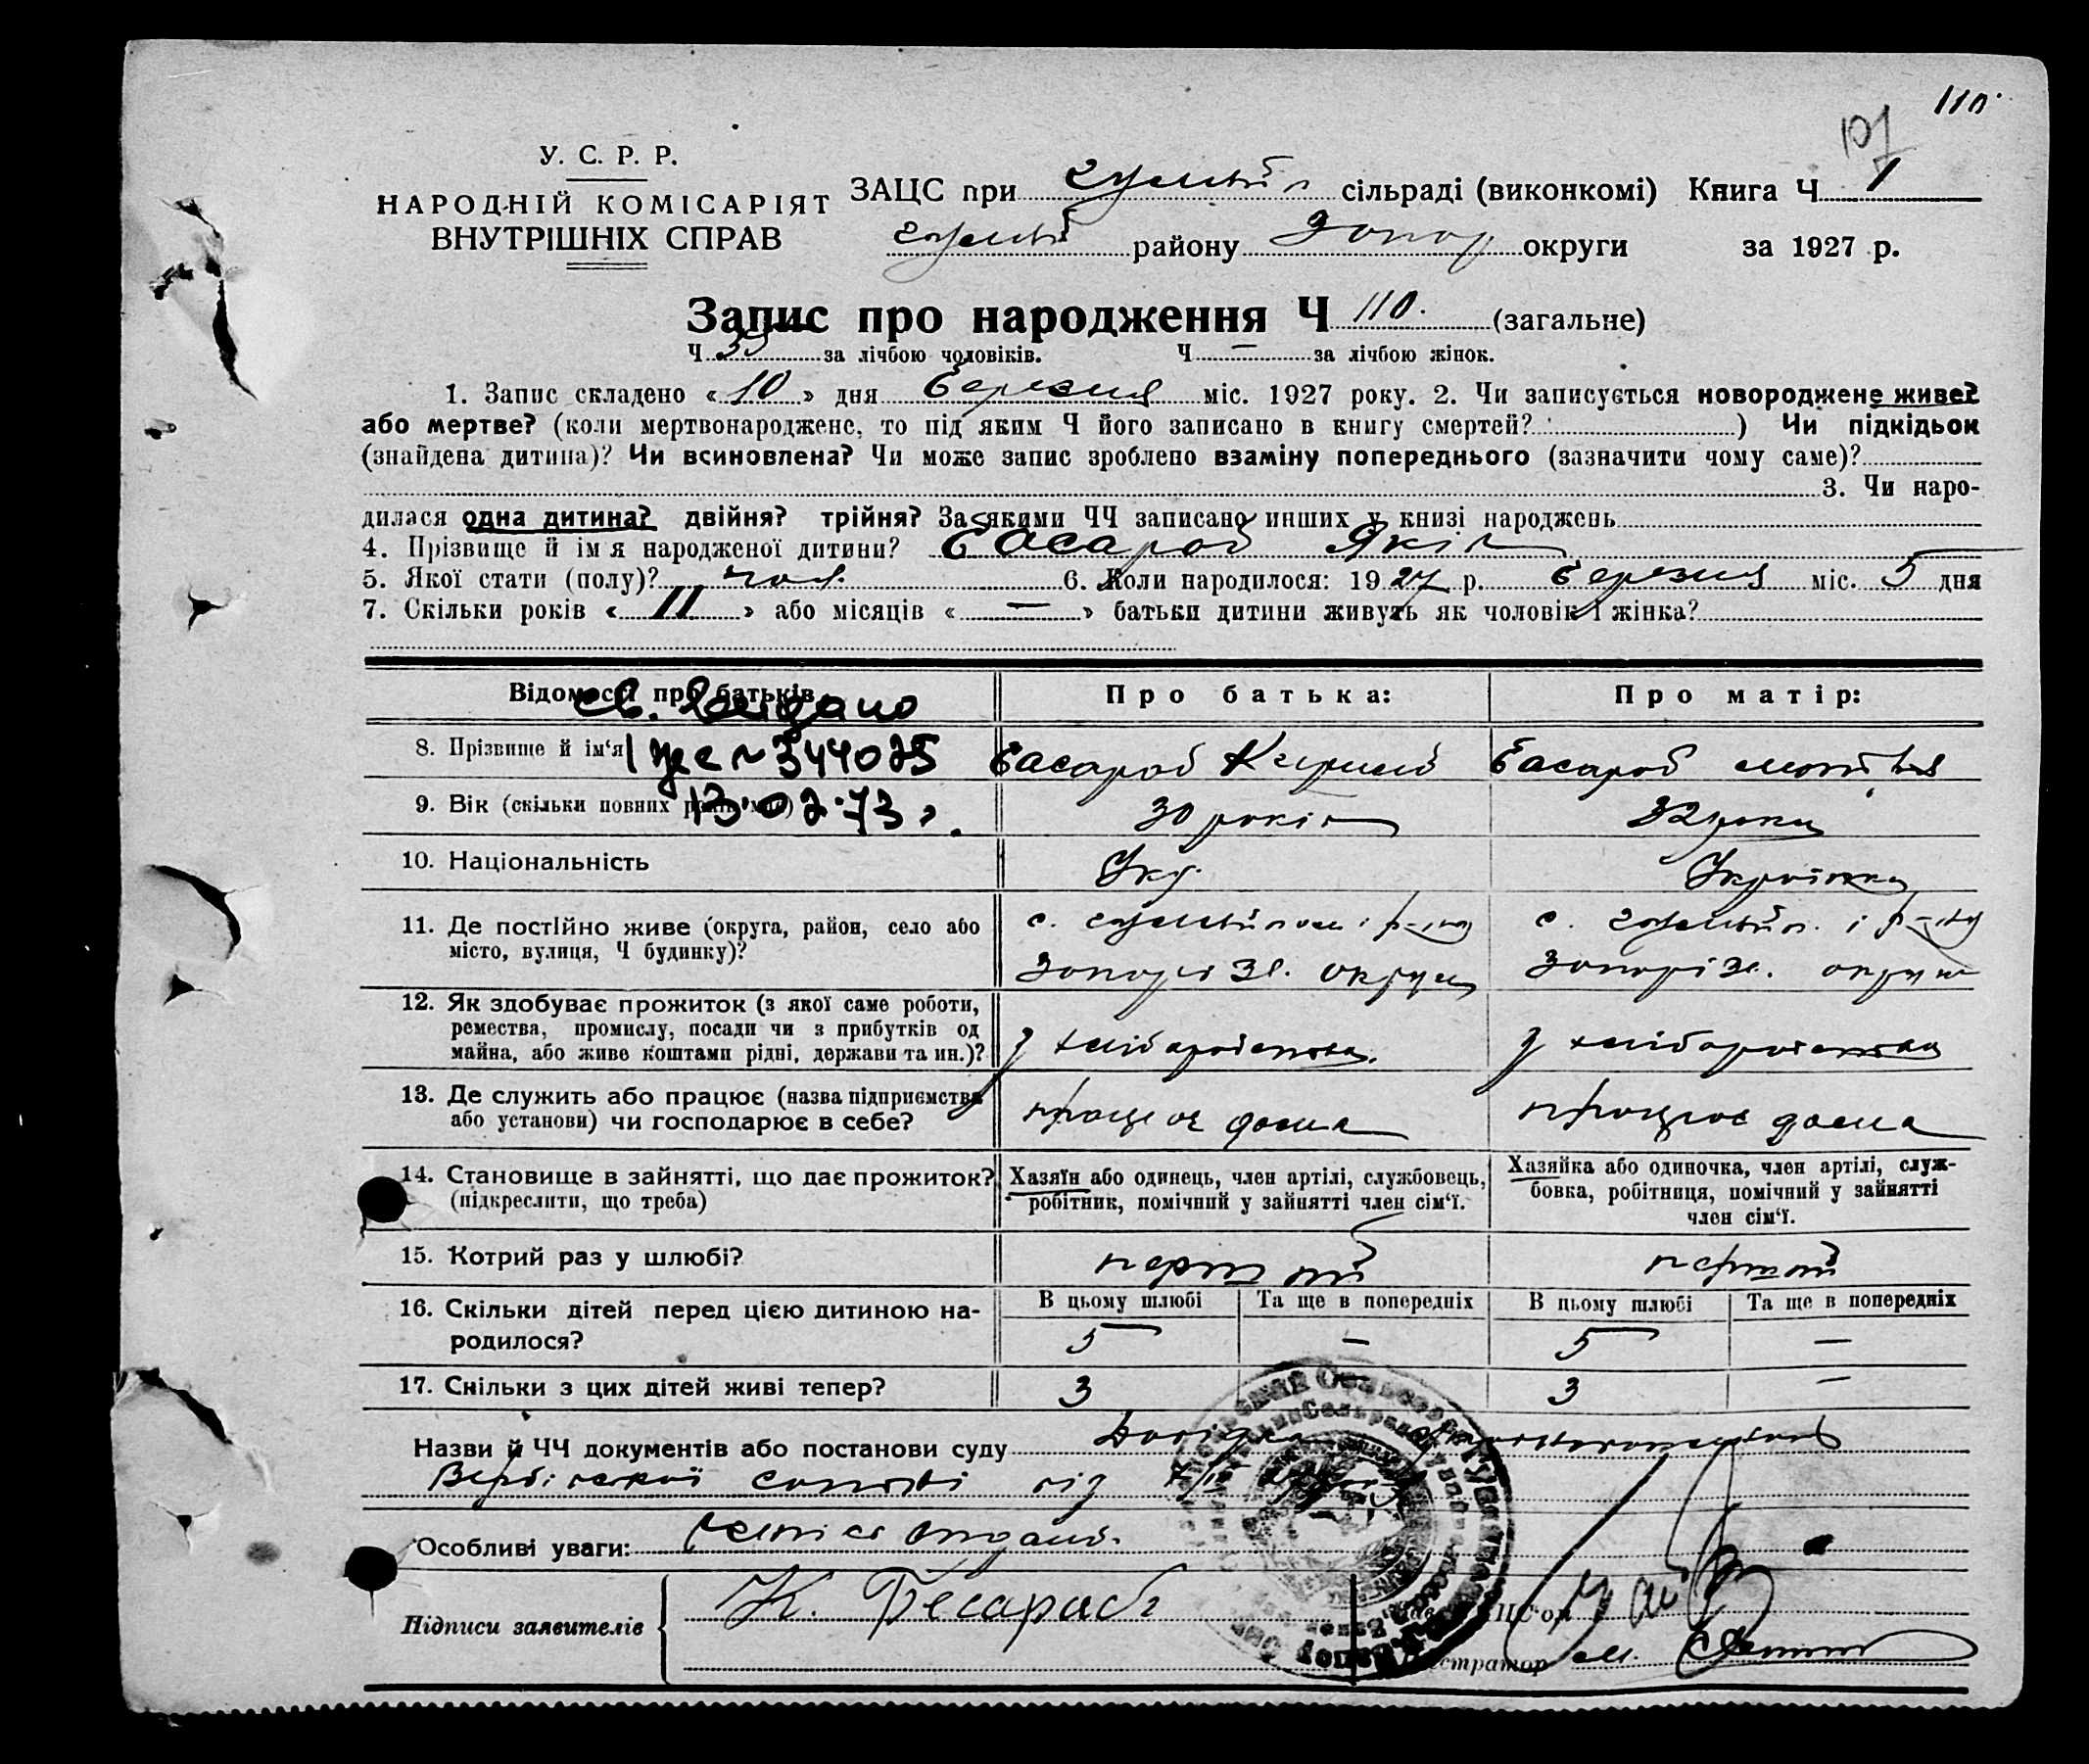 110.
107
У. С. Р. Р.
НАРОДНІЙ КОМІСАРІЯТ
ВНУТРІШНІХ СПРАВ
ЗАЦС при сільраді (виконкомі) Книга Ч 1
району Запор округи за 1927 р.
Запис про народження Ч 110. (загальне)
Ч 59 за лічбою чоловіків. Ч — за лічбою жінок.
1. Запис складено «10» дня березня міс. 1927 року. 2. Чи записується новороджене живе?
або мертве? (коли мертвонароджене, то під яким Ч його записано в книгу смертей? ) Чи підкідьок
(знайдена дитина)? Чи всиновлена? Чи може запис зроблено взаміну попереднього (зазначити чому саме)?
3. Чи наро-
дилася одна дитина? двійня? трійня? За якими ЧЧ записано инших у книзі народжень
4. Прізвище й ім'я народженої дитини? Басараб Яків
5. Якої стати (полу)? чол. 6. Коли народилося: 1927 р. березня міс. 5 дня
7. Скільки років «11» або місяців «—» батьки дитини живуть як чоловік і жінка?
Відомости про батьків Про батька: Про матір:
8. Прізвище й ім'я Басараб Кирило Басараб
№ 344075
9. Вік (скільки повних років має) 30 років 32 роки
13.02.73 г.
10. Національність Укр. Українка
11. Де постійно живе (округа, район, село або
місто, вулиця, Ч будинку)?
с. і р-ну
Запоріз. округи
с. і р-ну
Запоріз. округи
12. Як здобуває прожиток (з якої саме роботи,
ремества, промислу, посади чи з прибутків од
майна, або живе коштами рідні, держави та ин.)?
з хліборобства. з хліборобства
13. Де служить або працює (назва підприємства
або установи) чи господарює в себе?
працює дома працює дома
14. Становище в зайнятті, що дає прожиток?
(підкреслити, що треба)
Хазяїн або одинець, член артілі, службовець,
робітник, помічний у зайнятті член сім'ї.
Хазяйка або одиночка, член артілі, служ-
бовка, робітниця, помічний у зайнятті
член сім'ї.
15. Котрий раз у шлюбі? перший перший
16. Скільки дітей перед цією дитиною на-
родилося?
В цьому шлюбі Та ще в попередніх В цьому шлюбі Та ще в попередніх
5 — 5 —
17. Скільки з цих дітей живі тепер? 3 — 3 —
Назви й ЧЧ документів або постанови суду Довідка
від
Особливі уваги:
Підписи заявителів К. Бесараб